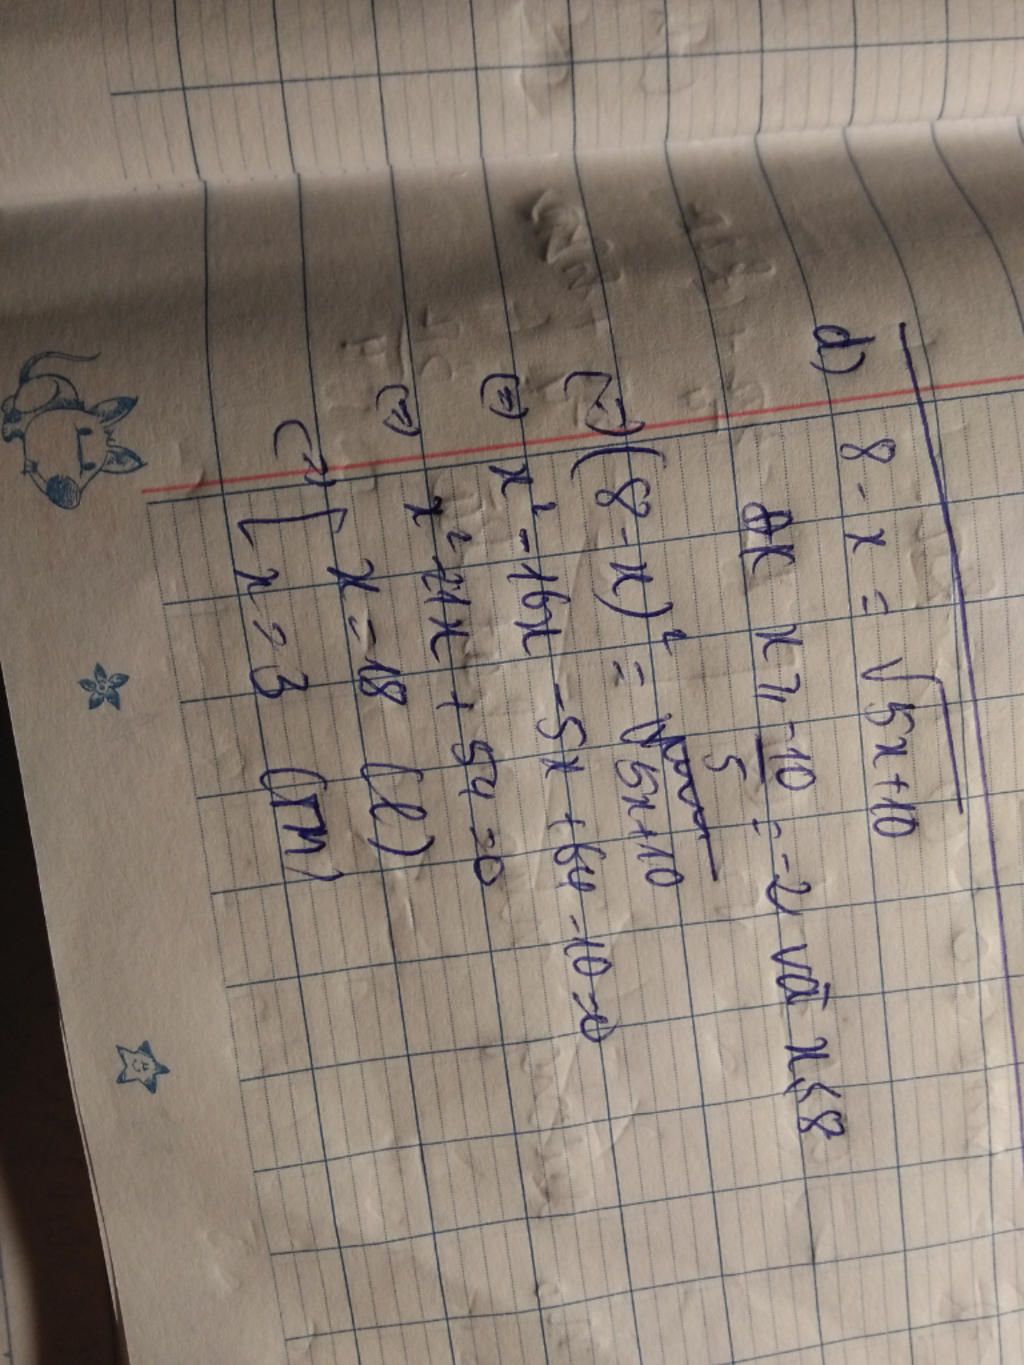 d) 8 - x = √5x+10
ĐK x ≥ -10/5 = -2 và x ≤ 8
(=) (8 - x)² = 5x+10
(=) x² - 16x - 5x + 64 - 10 = 0
(=) x² - 21x + 54 = 0
(=) [ x = 18 (l)
x = 3 (tm)